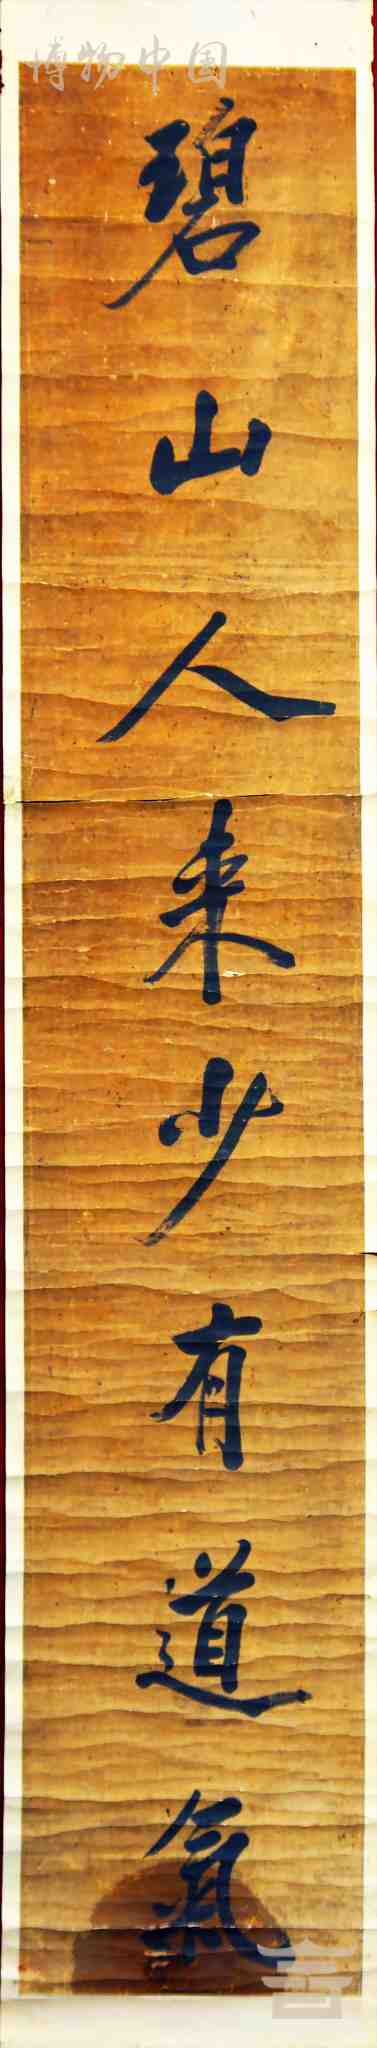 博物中国
碧山人来少有道氣